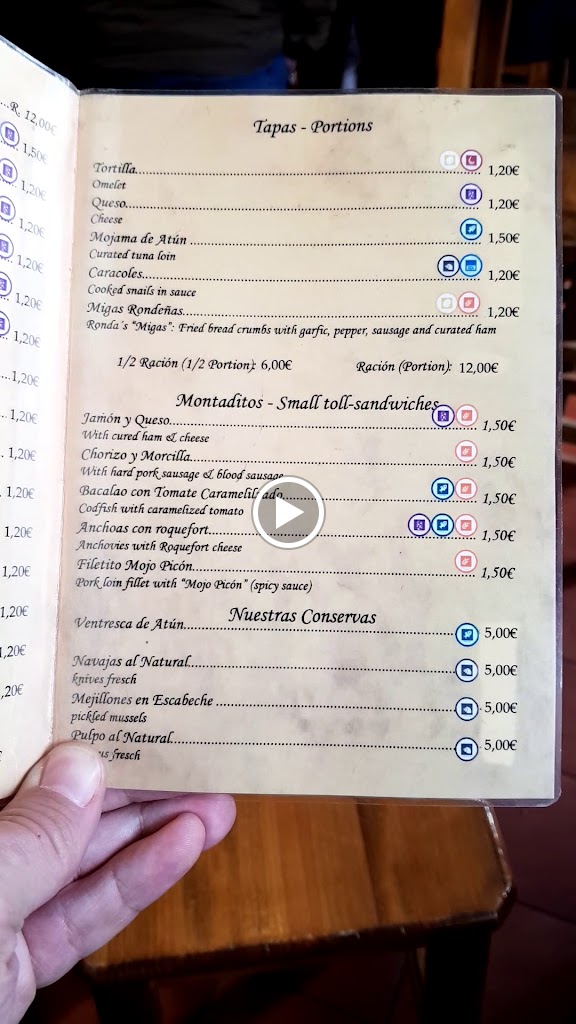 R. 12,00€
1,50€
1,20€
1,20€
1,20€
1,20€
1,20€
1,20€
1,20€
1,20€
1,20€
1,20€
1,20€
1,20€
1,20€
,20€
Tapas - Portions
Tortilla 1,20€
Omelet
Queso 1,20€
Cheese
Mojama de Atún 1,50€
Curated tuna loin
Caracoles 1,20€
Cooked snails in sauce
Migas Rondeñas 1,20€
Ronda´s "Migas": Fried bread crumbs with garfic, pepper, sausage and curated ham
1/2 Ración (1/2 Portion): 6,00€ Ración (Portion): 12,00€
Montaditos - Small toll-sandwiches
Jamón y Queso 1,50€
With cured ham & cheese
Chorizo y Morcilla 1,50€
With hard pork sausage & blood sausage
Bacalao con Tomate 1,50€
Codfish with caramelized tomato
Anchoas con roquefort 1,50€
Anchovies with Roquefort cheese
Filetito Mojo Picón 1,50€
Pork loin fillet with "Mojo Picón" (spicy sauce)
Nuestras Conservas
Ventresca de Atún 5,00€
Navajas al Natural 5,00€
knives fresch
Mejillones en Escabeche 5,00€
pickled mussels
Pulpo al Natural 5,00€
us fresch